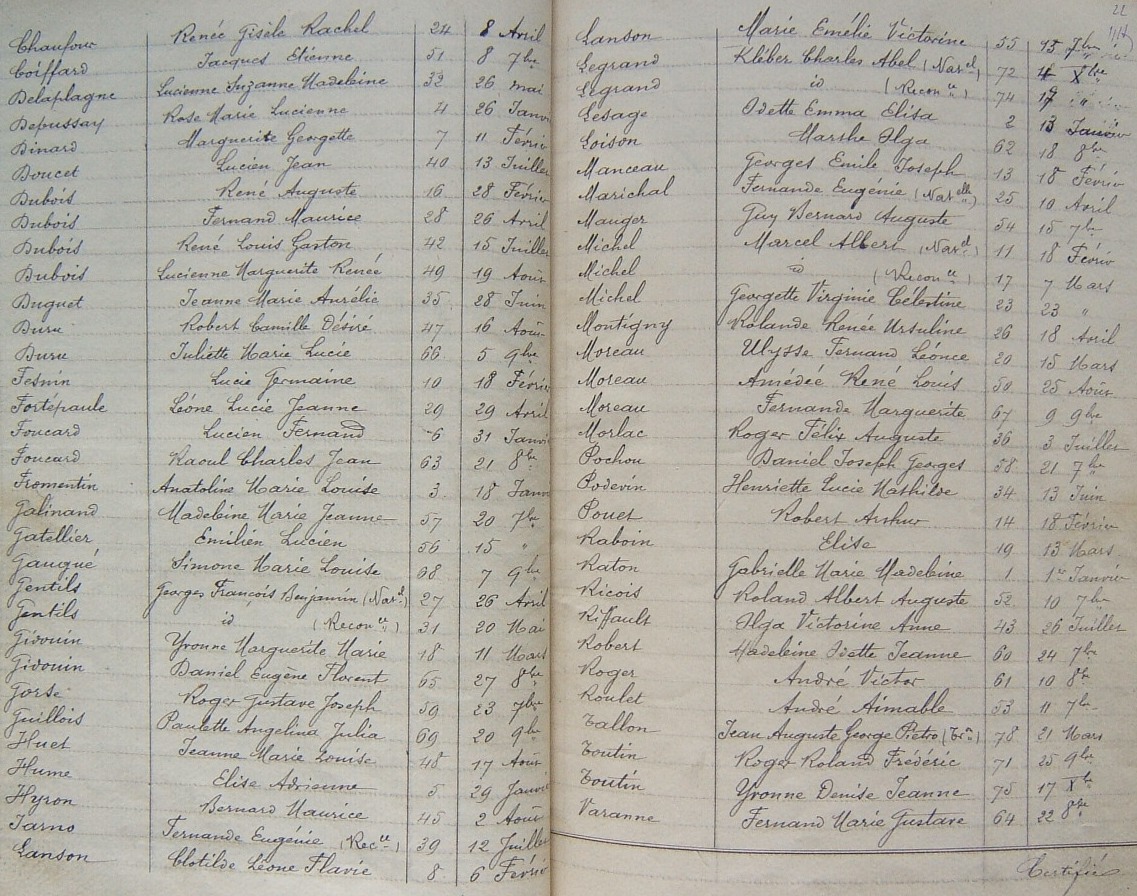 Chaufour Renée Gisèle Rachel 24 8 Avril
Coiffard Jacques Etienne 51 8 7bre
Delaplagne Lucienne Suzanne Madeleine 32 26 mai
Depussay Rose Marie Lucienne 4 26 Janvi
Dinard Marguerite Georgette 7 11 Févrie
Doucet Lucien Jean 40 13 Juillet
Dubois René Auguste 16 28 Févrie
Dubois Fernand Maurice 28 26 Avril
Dubois René Louis Gaston 42 15 Juillet
Dubois Lucienne Marguerite Renée 49 19 Août
Duguet Jeanne Marie Aurélie 35 28 Juin
Duru Robert Camille Désiré 47 16 Août
Duru Juliette Marie Lucie 66 5 9bre
Fesnin Lucie Germaine 10 18 Févrie
Fortépaule Léone Lucie Jeanne 29 29 Avril
Foucard Lucien Fernand 6 31 Janvi
Foucard Raoul Charles Jean 63 21 8bre
Fromentin Anatoline Marie Louise 3 18 Janv
Galinand Madeleine Marie Jeanne 57 20 7bre
Gatellier Emilien Lucien 56 15 "
Gaugué Simone Marie Louise 68 7 9bre
Gentils Georges François Benjamin (Natel) 27 26 Avril
Gentils id (Reconce) 31 20 Mai
Gidouin Yvonne Marguerite Marie 18 11 Mars
Gidouin Daniel Eugène Florent 65 27 8bre
Gorse Roger Gustave Joseph 59 23 7bre
Guillois Paulette Angelina Julia 69 20 9bre
Huet Jeanne Marie Louise 48 17 Août
Hume Elise Adrienne 5 29 Janvie
Hyron Bernard Maurice 45 2 Août
Jarno Fernande Eugénie (Recce) 39 12 Juillet
Lanson Clotilde Léone Flavie 8 6 Févrie
22
Lanson Marie Emélie Victorine 55 15 7bre
Legrand Kléber Charles Abel (Natel) 72 4 Xbre
Legrand id (Reconce) 74 17 "
Lesage Odette Emma Elisa 2 13 Janvier
Loison Marthe Olga 62 18 8bre
Manceau Georges Emile Joseph 13 18 Février
Marichal Fernande Eugénie (Natelle) 25 10 Avril
Mauger Guy Bernard Auguste 54 15 7bre
Michel Marcel Albert (Natel) 11 18 Févrie
Michel id (Reconce) 17 7 Mars
Michel Georgette Virginie Célestine 23 23 "
Montigny Rolande Renée Ursuline 26 18 Avril
Moreau Ulysse Fernand Léonce 20 15 Mars
Moreau Amédée René Louis 50 25 Août
Moreau Fernande Marguerite 67 9 9bre
Morlac Roger Félix Auguste 36 3 Juillet
Pochou Daniel Joseph Georges 58 21 7bre
Podevin Henriette Lucie Mathilde 34 13 Juin
Pouet Robert Arthur 14 18 Février
Raboin Elise 19 13 Mars
Raton Gabrielle Marie Madeleine 1 1er Janvier
Ricois Roland Albert Auguste 52 10 7bre
Riffault Olga Victorine Anne 43 26 Juillet
Robert Madeleine Odette Jeanne 60 24 7bre
Roger André Victor 61 10 8bre
Roulet André Aimable 53 11 7bre
Tallon Jean Auguste George Pietro (Trn) 78 21 Mars
Toutin Roger Roland Frédéric 71 25 9bre
Toutin Yvonne Denise Jeanne 75 17 Xbre
Varanne Fernand Marie Gustave 64 22 8bre
Certifié